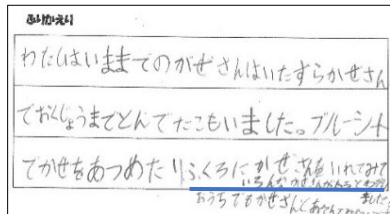 ふりかえり
わたしはいままでのかぜさんはいたずらかぜさん
でおくじょうまでとんでたこもいました。ブルーシート
でかぜをあつめたりふくろにかぜさんをいれてみて
いろんなかぜさんがいるとわかり
ました。
おうちでもかぜさんとあそんでみたい